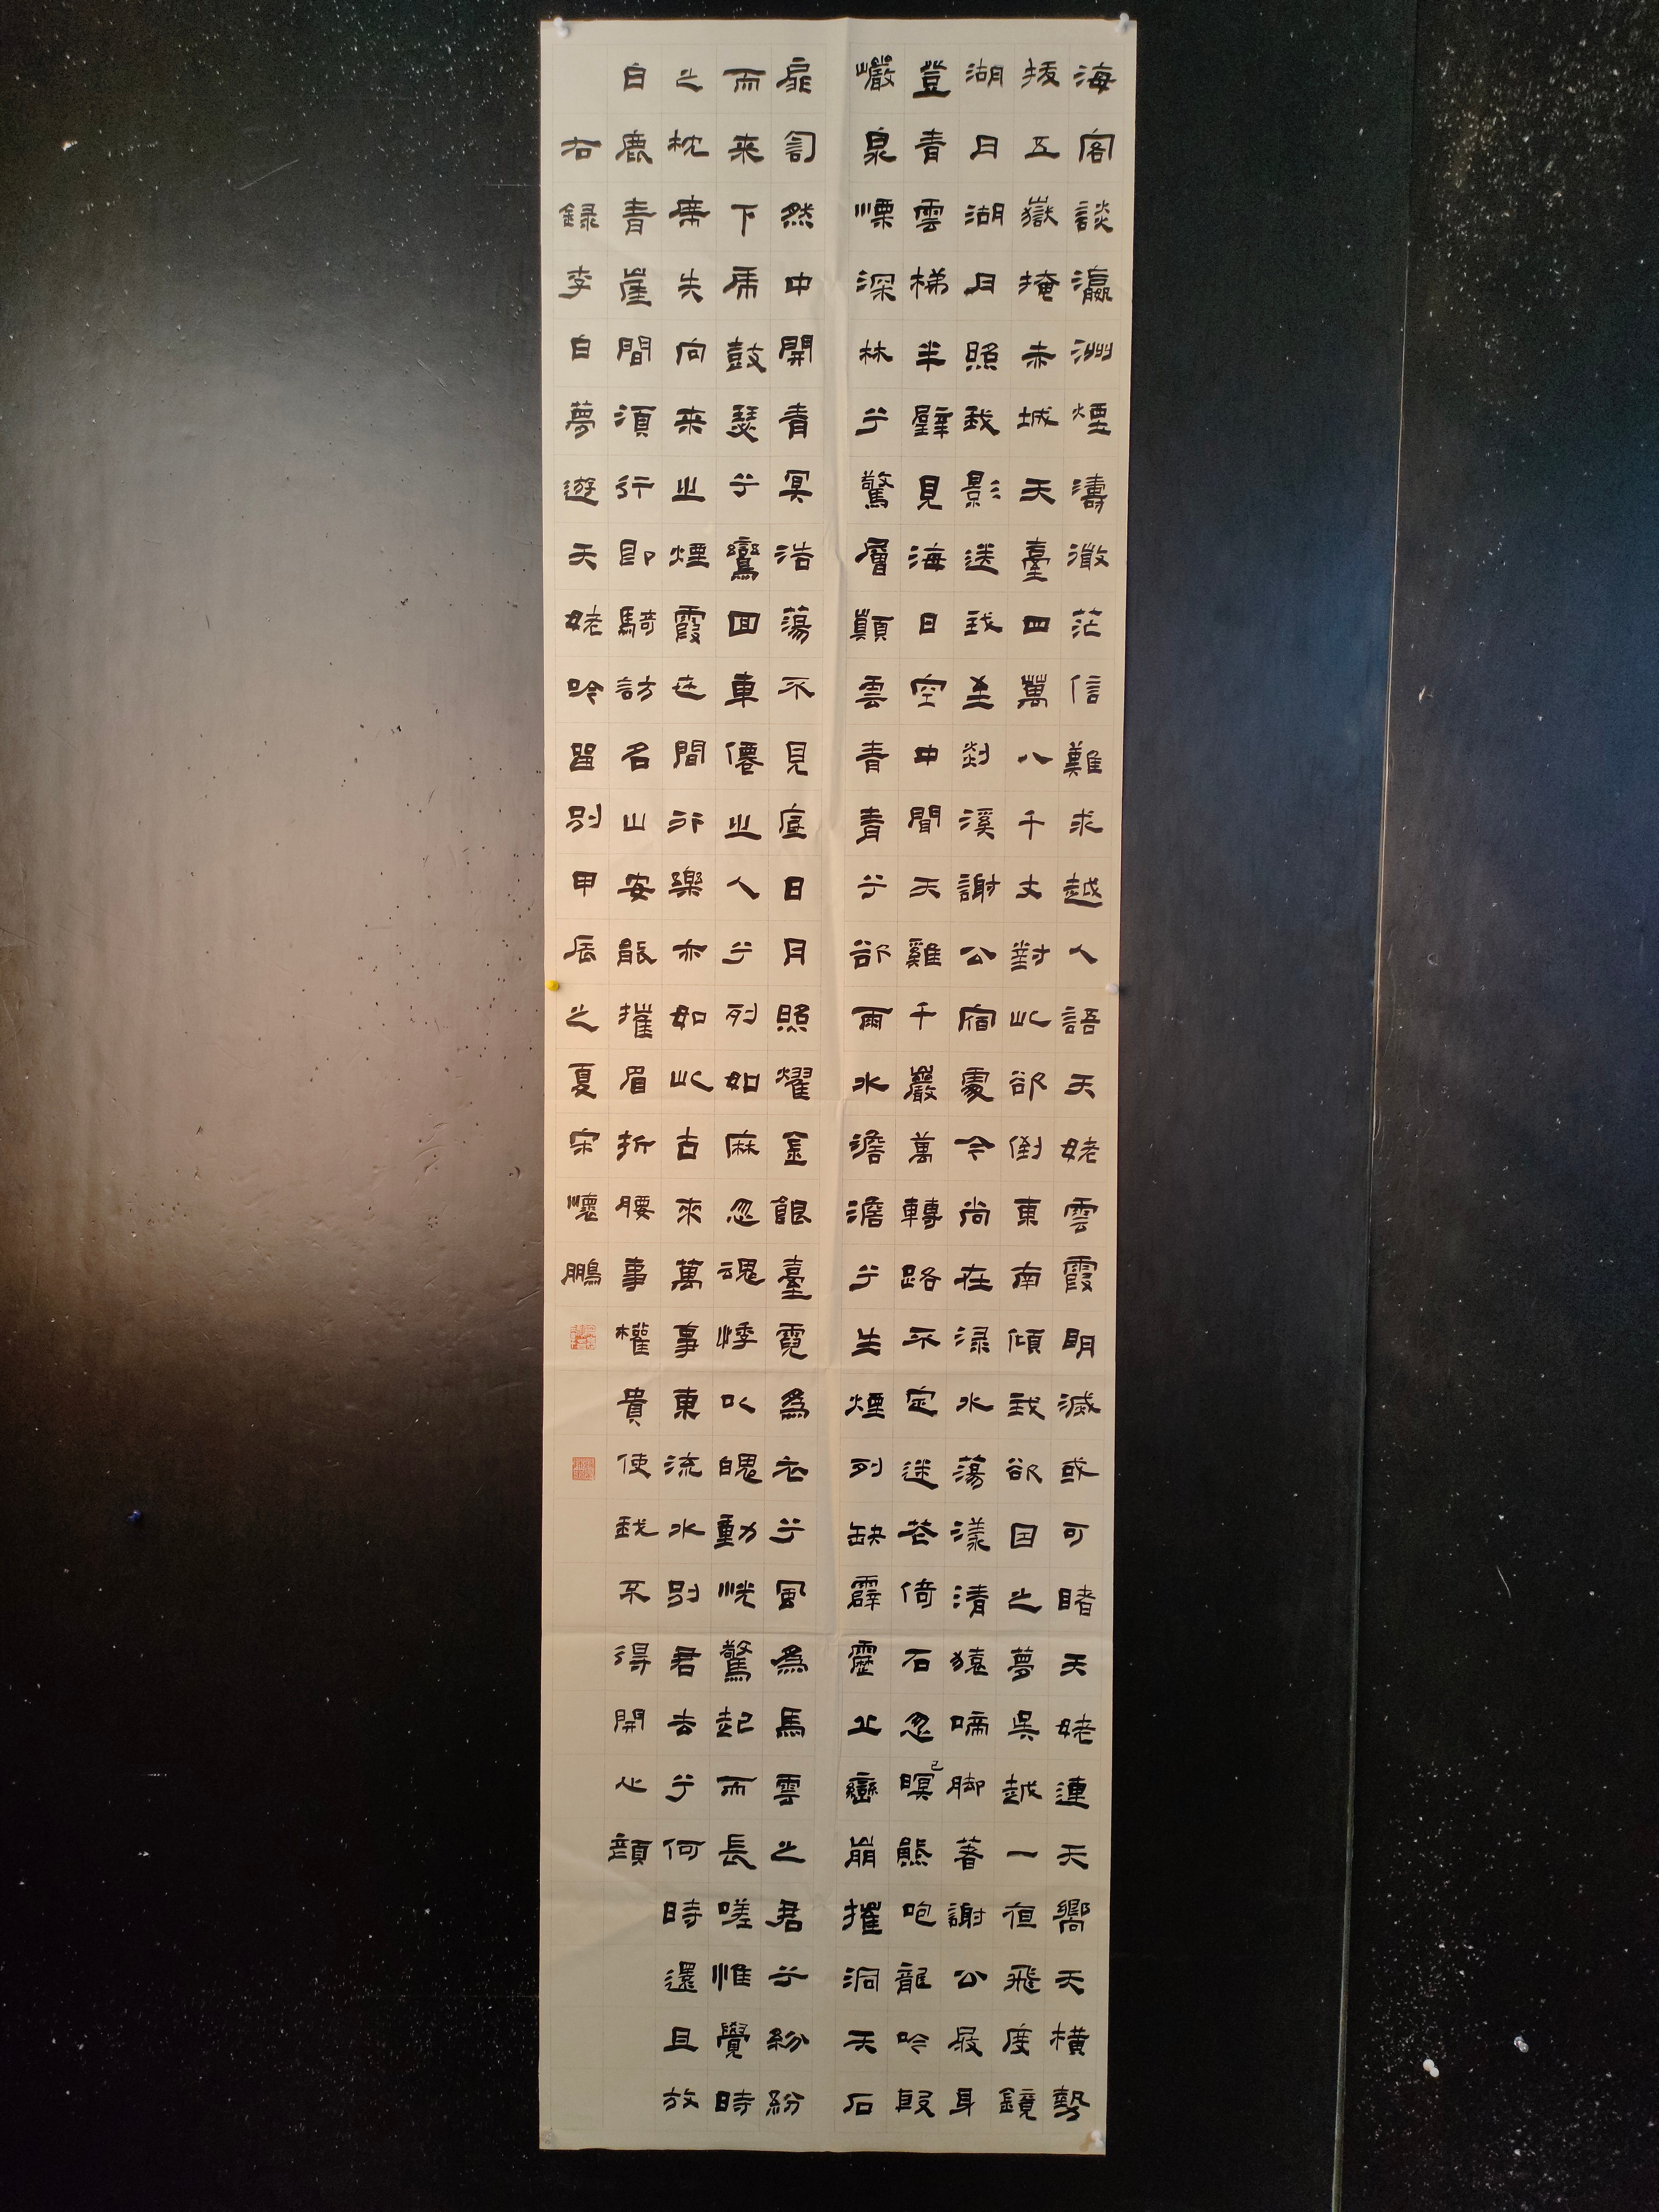 海客談瀛洲煙濤溦茫信難求越人語天姥雲霞明滅或可睹天姥連天嚮天橫勢
拔五嶽掩赤城天臺四萬八千丈對此欲倒東南傾我欲因之夢吳越一夜飛度鏡
湖月湖月照我影送我至剡溪謝公宿處今尚在渌水蕩漾清猿啼脚著謝公屐身
登青雲梯半壁見海日空中聞天雞千巖萬轉路不定迷花倚石忽已暝熊咆龍吟殷
巖泉慄深林兮驚層顛雲青青兮欲雨水澹澹兮生煙列缺霹靂丘巒崩摧洞天石
扉訇然中開青冥浩蕩不見底日月照耀金銀臺霓為衣兮風為馬雲之君兮紛紛
而来下虎鼓瑟兮鸞回車僊之人兮列如麻忽魂悸以魄動恍驚起而長嗟惟覺時
之枕席失向来之煙霞世間行樂亦如此古來萬事東流水別君去兮何時還且放
白鹿青崖間須行即騎訪名山安能摧眉折腰事權貴使我不得開心顏
右録李白夢遊天姥吟留別甲辰之夏宋懷鵬